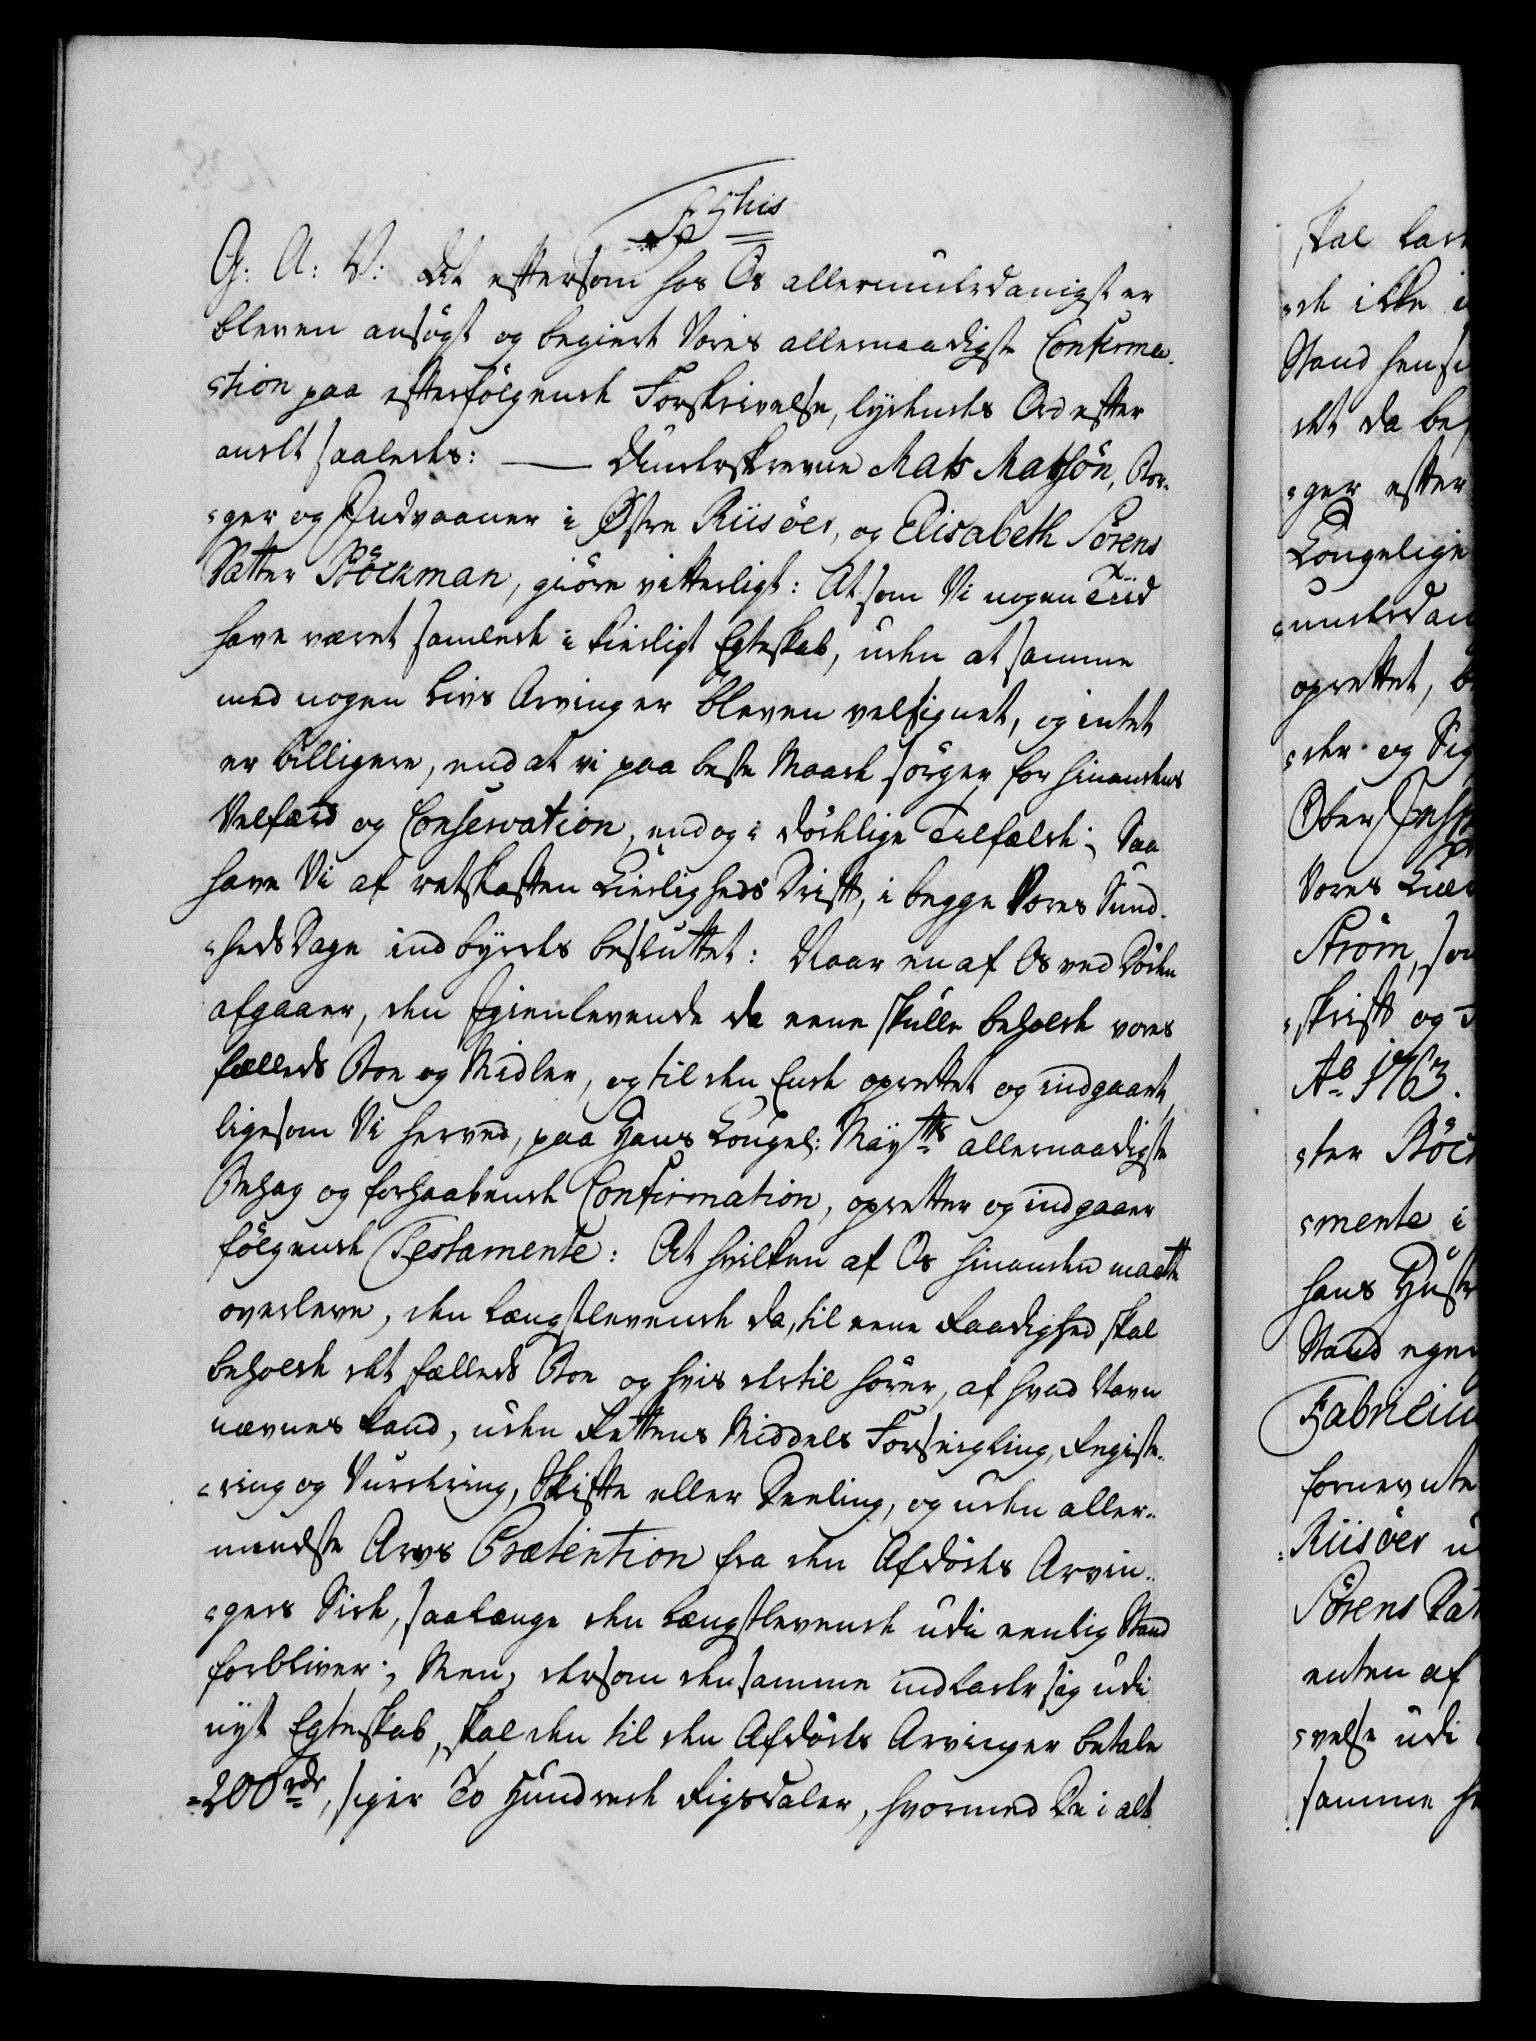 G: A: V: At eftersom hos Os allerunderdanigst er
bleven ansögt og begiert Vores allernaadigste Confirma-
-tion paa efterfölgende Forskrivelse, lydendes Ord efter
andet saaledes: — Underskrevne Mats Matsön, Bor-
-ger og Indvaaner i Østre Riisöer, og Elisabeth Sörens
Datter Böckman, giöre vitterligt: At som Vi nogen Tiid
have været samlede i kierligt Egteskab, uden at samme
med nogen Livs Arvinger bleven velsignet, og intet
er billigere, end at vi paa beste Maade sörger for hinandens
Velfærd og Conservation, endog i dödelige Tilfælde; Saa
have Vi af retskaffen Kierligheds Drift, i begge Vores Sund-
-heds Dage indbyrdes besluttet: Naar en af Os ved Döden
afgaaer, den Igienlevende da eene skulle beholde vores
fælleds Boe og Midler, og til den Ende oprettet og indgaaet,
ligesom Vi herved, paa Hans Kongel: Mayts allernaadigste
Behag og forhaabende Confirmation, opretter og indgaaer
fölgende Testamente: At hvilken af Os hinanden maatte
overleve, den Længstlevende da, til eene Raadighed skal
beholde det fælleds Boe og hvis dertil hörer, af hvad Navn
nævnes kand, uden Rettens Middels Forseigling, Registe-
-ring og Vurdering, Skifte eller Deeling, og uden aller-
mindste Arvs Prætention fra den Afdödes Arvin-
-gers Side, saalænge den Længstlevende udi eenlig Stand
forbliver; Men, dersom den samme indlader sig udi
nyt Egteskab, skal den til den Afdödes Arvinger betale
200 rdr, siger To Hundrede Rigsdaler, hvormed De i alt
skal
-de ikke
Stand
det da
-ger efter
Kongelige
oprettet,
-der og
Vores
Ström,
-skrift og
Ao 1763.
-ter
-mente i
hans
Stand
fornevnte
Riisöer
Sörens
enten af
-velse udi
samme